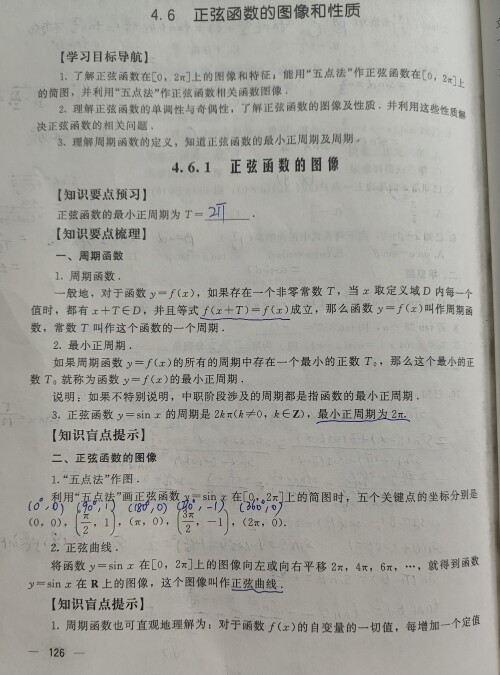 4.6 正弦函数的图像和性质
【学习目标导航】
1. 了解正弦函数在[0, 2π]上的图像和特征；能用“五点法”作正弦函数在[0, 2π]上
的简图，并利用“五点法”作正弦函数相关函数图像.
2. 理解正弦函数的单调性与奇偶性，了解正弦函数的图像及性质.并利用这些性质解
决正弦函数的相关问题.
3. 理解周期函数的定义，知道正弦函数的最小正周期及周期.
4.6.1 正弦函数的图像
【知识要点预习】
正弦函数的最小正周期为 T= 2π .
【知识要点梳理】
一、周期函数
1. 周期函数.
一般地，对于函数 y=f(x)，如果存在一个非零常数 T，当 x 取定义域 D 内每一个
值时，都有 x+T∈D，并且等式 f(x+T)=f(x)成立，那么函数 y=f(x)叫作周期函
数，常数 T 叫作这个函数的一个周期.
2. 最小正周期.
如果周期函数 y=f(x)的所有的周期中存在一个最小的正数 T₀，那么这个最小的正
数 T₀ 就称为函数 y=f(x)的最小正周期.
说明：如果不特别说明，中职阶段涉及的周期都是指函数的最小正周期.
3. 正弦函数 y=sin x 的周期是 2kπ(k≠0，k∈Z)，最小正周期为 2π.
【知识盲点提示】
二、正弦函数的图像
1.“五点法”作图.
利用“五点法”画正弦函数 y=sin x 在[0, 2π]上的简图时，五个关键点的坐标分别是
(0°, 0) (90°, 1) (180°, 0) (270°, -1) (360°, 0)
(0, 0), (π/2, 1), (π, 0), (3π/2, -1), (2π, 0).
2. 正弦曲线.
将函数 y=sin x 在[0, 2π]上的图像向左或向右平移 2π，4π，6π，…，就得到函数
y=sin x 在 R 上的图像，这个图像叫作正弦曲线.
【知识盲点提示】
1. 周期函数也可直观地理解为：对于函数 f(x)的自变量的一切值，每增加一个定值
— 126 —